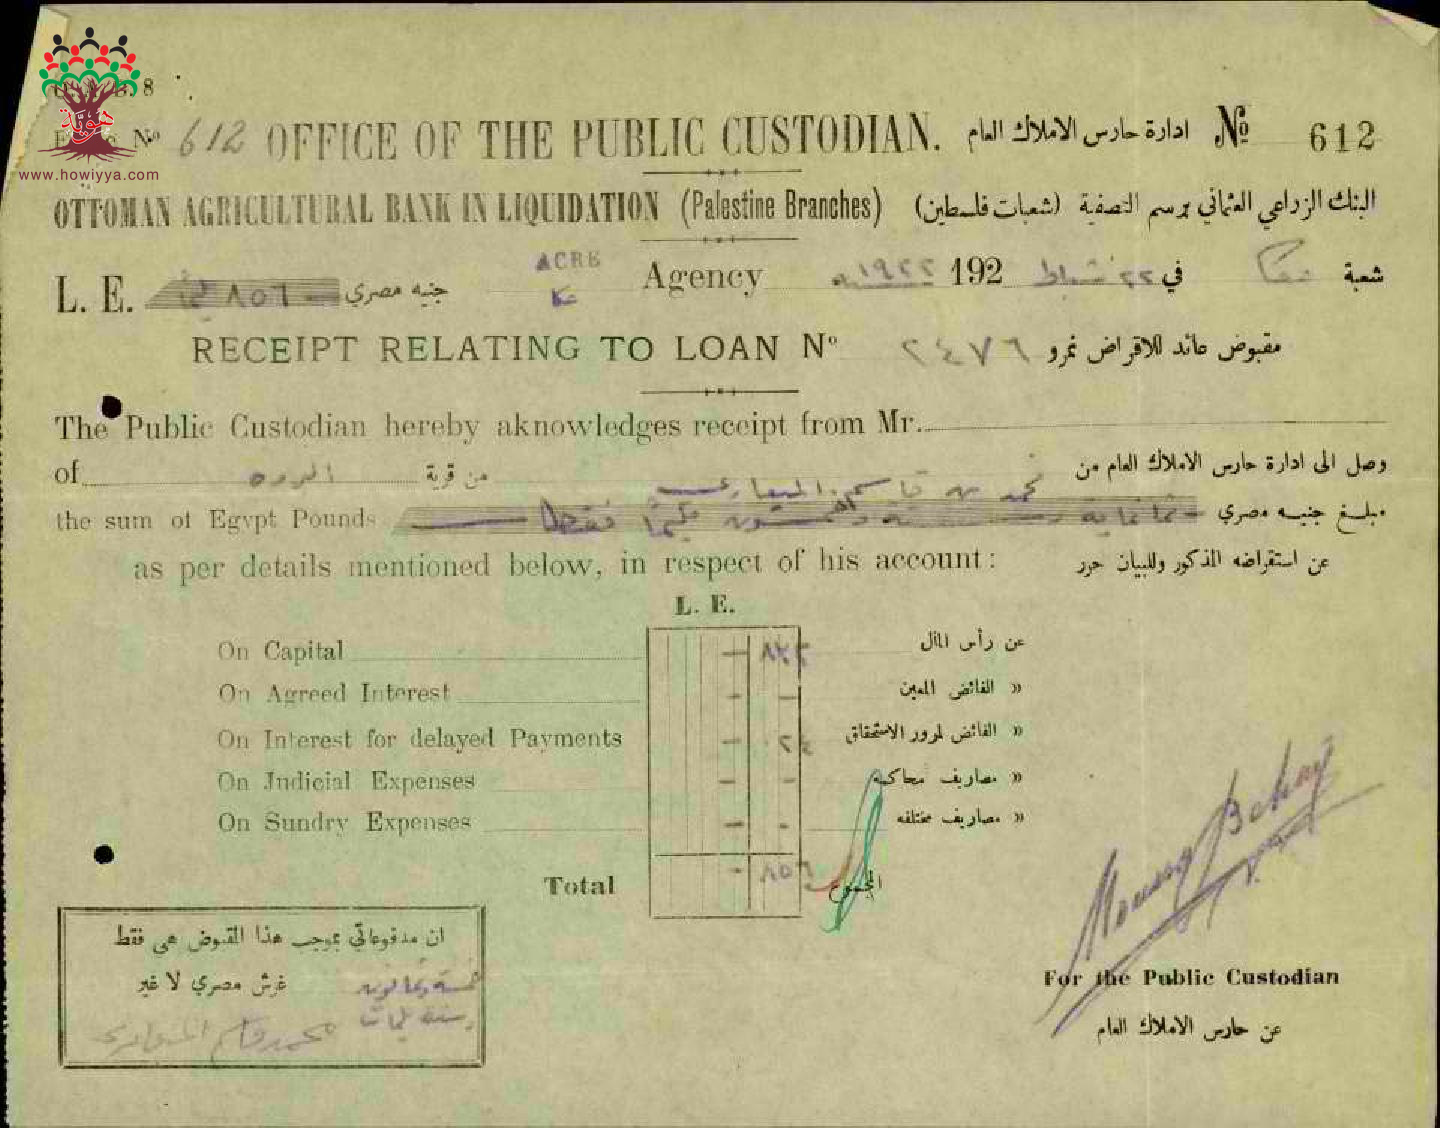 هوية
www.howiyya.com
8
No 612 OFFICE OF THE PUBLIC CUSTODIAN. ادارة حارس الاملاك العام No 612
OTTOMAN AGRICULTURAL BANK IN LIQUIDATION (Palestine Branches) البنك الزراعي العثماني برسم التصفية (شعبات فلسطين)
L. E. ٨٥٦ جنيه مصري ACRE عكا Agency ١٩٢٢ 192 ٢٢ شباط في عكا شعبة
RECEIPT RELATING TO LOAN No ٢٤٧٦ مقبوض عائد للاقراض نمرو
The Public Custodian hereby aknowledges receipt from Mr.
of البروه من قرية محمد بن قاسم الميعاري وصل الى ادارة حارس الاملاك العام من
the sum of Egypt Pounds ثمانماية وستة وخمسون مليمًا فقط مبلغ جنيه مصري
as per details mentioned below, in respect of his account: عن استقراضه المذكور وللبيان حرر
L. E.
On Capital — ٨٣٢ عن رأس المال
On Agreed Interest - — » الفائض المعين
On Interest for delayed Payments — ٠٢٤ » الفائض لمرور الاستحقاق
On Judicial Expenses - - » مصاريف محاكمه
On Sundry Expenses — - » مصاريف مختلفه
Total - ٨٥٦ المجموع
ان مدفوعاتي بموجب هذا المقبوض هي فقط
خمسة وثمانون غرش مصري لا غير
وستة مليمات
محمد قاسم الميعاري
For the Public Custodian
عن حارس الاملاك العام